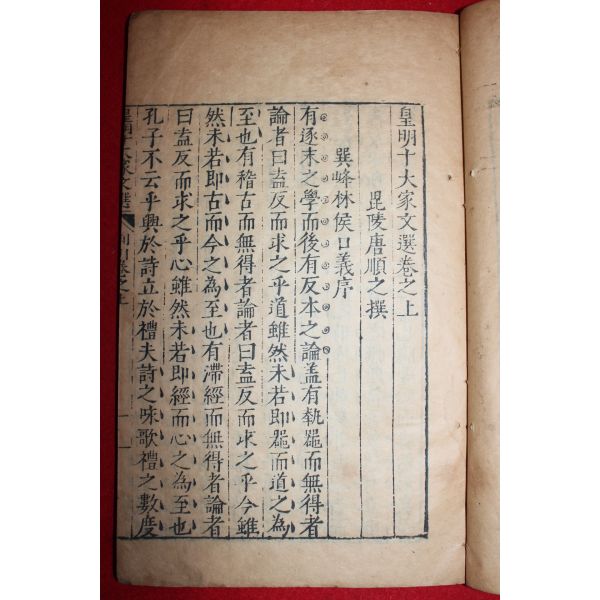 皇明十大家文選卷之上
毘陵唐順之撰
巽峰林侯口義序
有逐末之學而後有反本之論盖有執噐而無得者
論者曰盍反而求之乎道雖然未若即噐而道之為
至也有稽古而無得者論者曰盍反而求之乎今雖
然未若即古而今之為至也有滯經而無得者論者
曰盍反而求之乎心雖然未若即經而心之為至也
孔子不云乎興於詩立於禮夫詩之咏歌禮之數度
皇明十大家文選 荆川卷之上 一